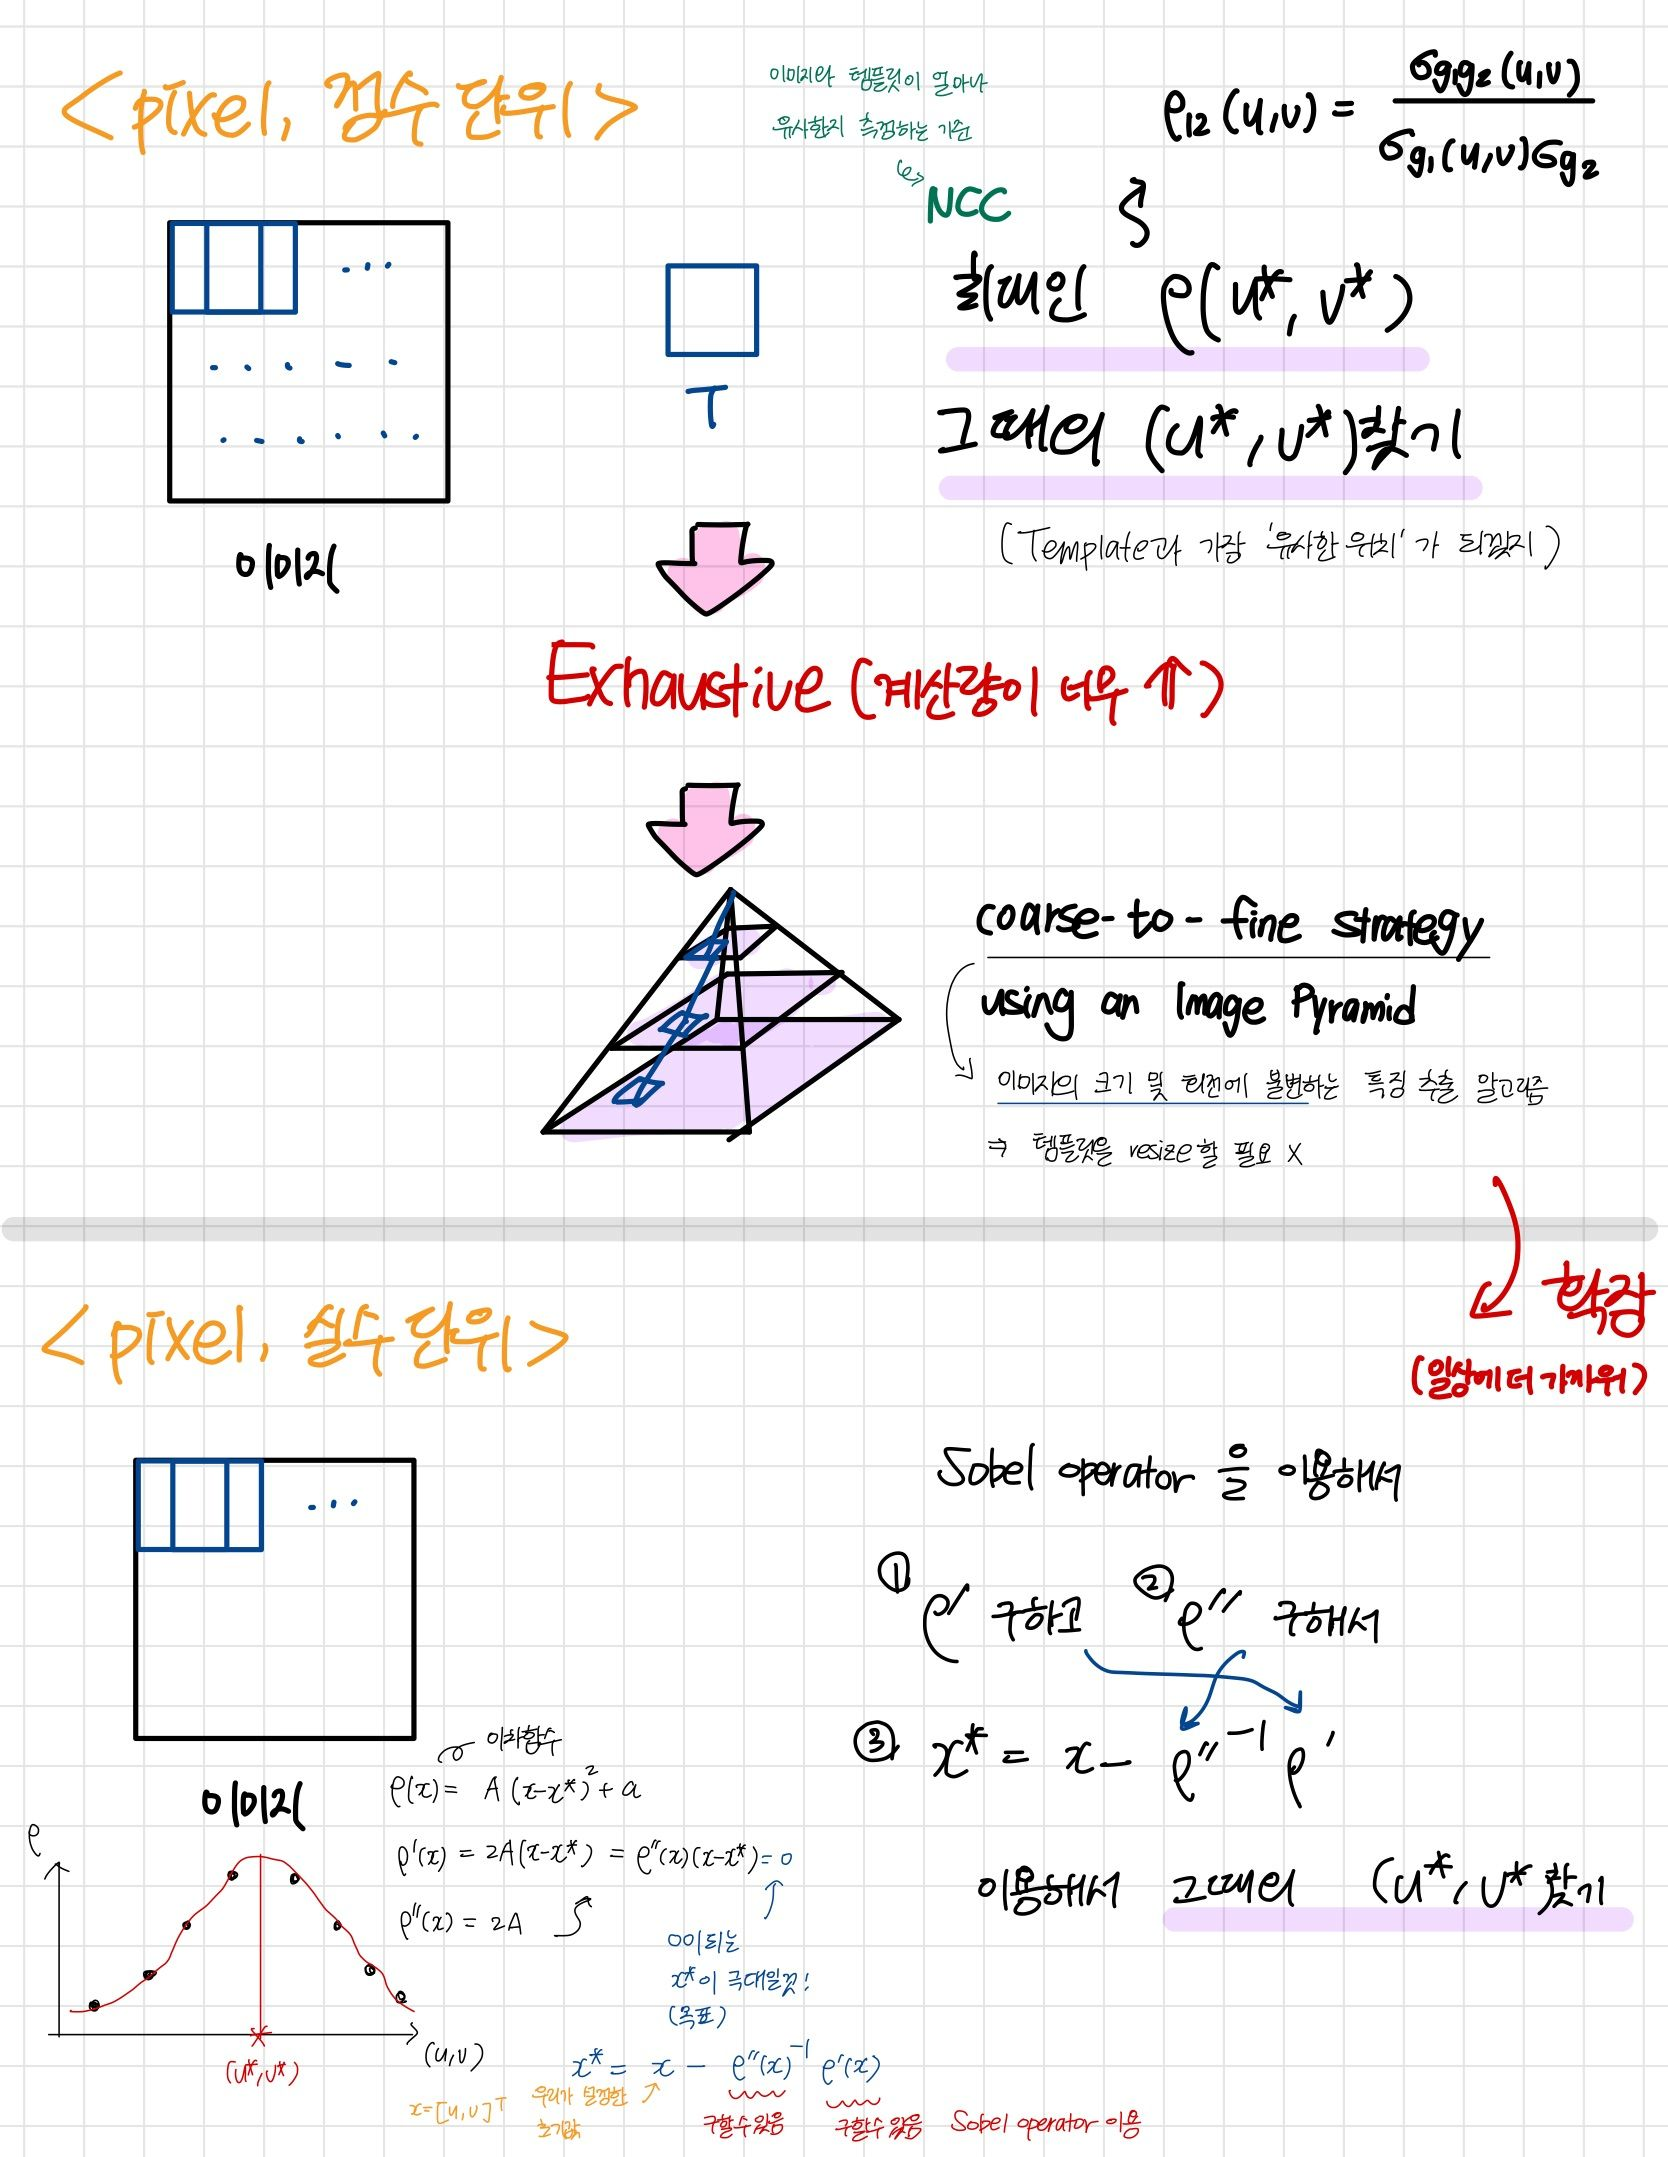 <pixel, 정수 단위>
이미지와 템플릿이 얼마나
유사한지 측정하는 기준
NCC
ρ₁₂(u,v) = σg₁g₂(u,v) / σg₁(u,v)σg₂
최대인 ρ(u*, v*)
그때의 (u*, v*)찾기
(Template과 가장 '유사한 위치'가 되겠지)
T
이미지
Exhaustive (계산량이 너무 ↑)
coarse-to-fine strategy
using an Image Pyramid
이미지의 크기 및 회전에 불변하는 특징 추출 알고리즘
⇒ 템플릿을 resize할 필요 X
확장
(일상에 더 가까워)
<pixel, 실수 단위>
Sobel operator 을 이용해서
① ρ' 구하고 ② ρ'' 구해서
③ x* = x - ρ''⁻¹ ρ'
이용해서 그때의 (u*, v* 찾기
이미지
이차함수
ρ(x) = A(x-x*)² + a
ρ'(x) = 2A(x-x*) = ρ''(x)(x-x*) = 0
ρ''(x) = 2A
0이 되는
x*이 극대일것!
(목표)
ρ
(u,v)
(u*,v*)
x* = x - ρ''(x)⁻¹ ρ'(x)
x=[u,v]ᵀ
우리가 설정한
초기값
구할수있음
구할수있음
Sobel operator 이용